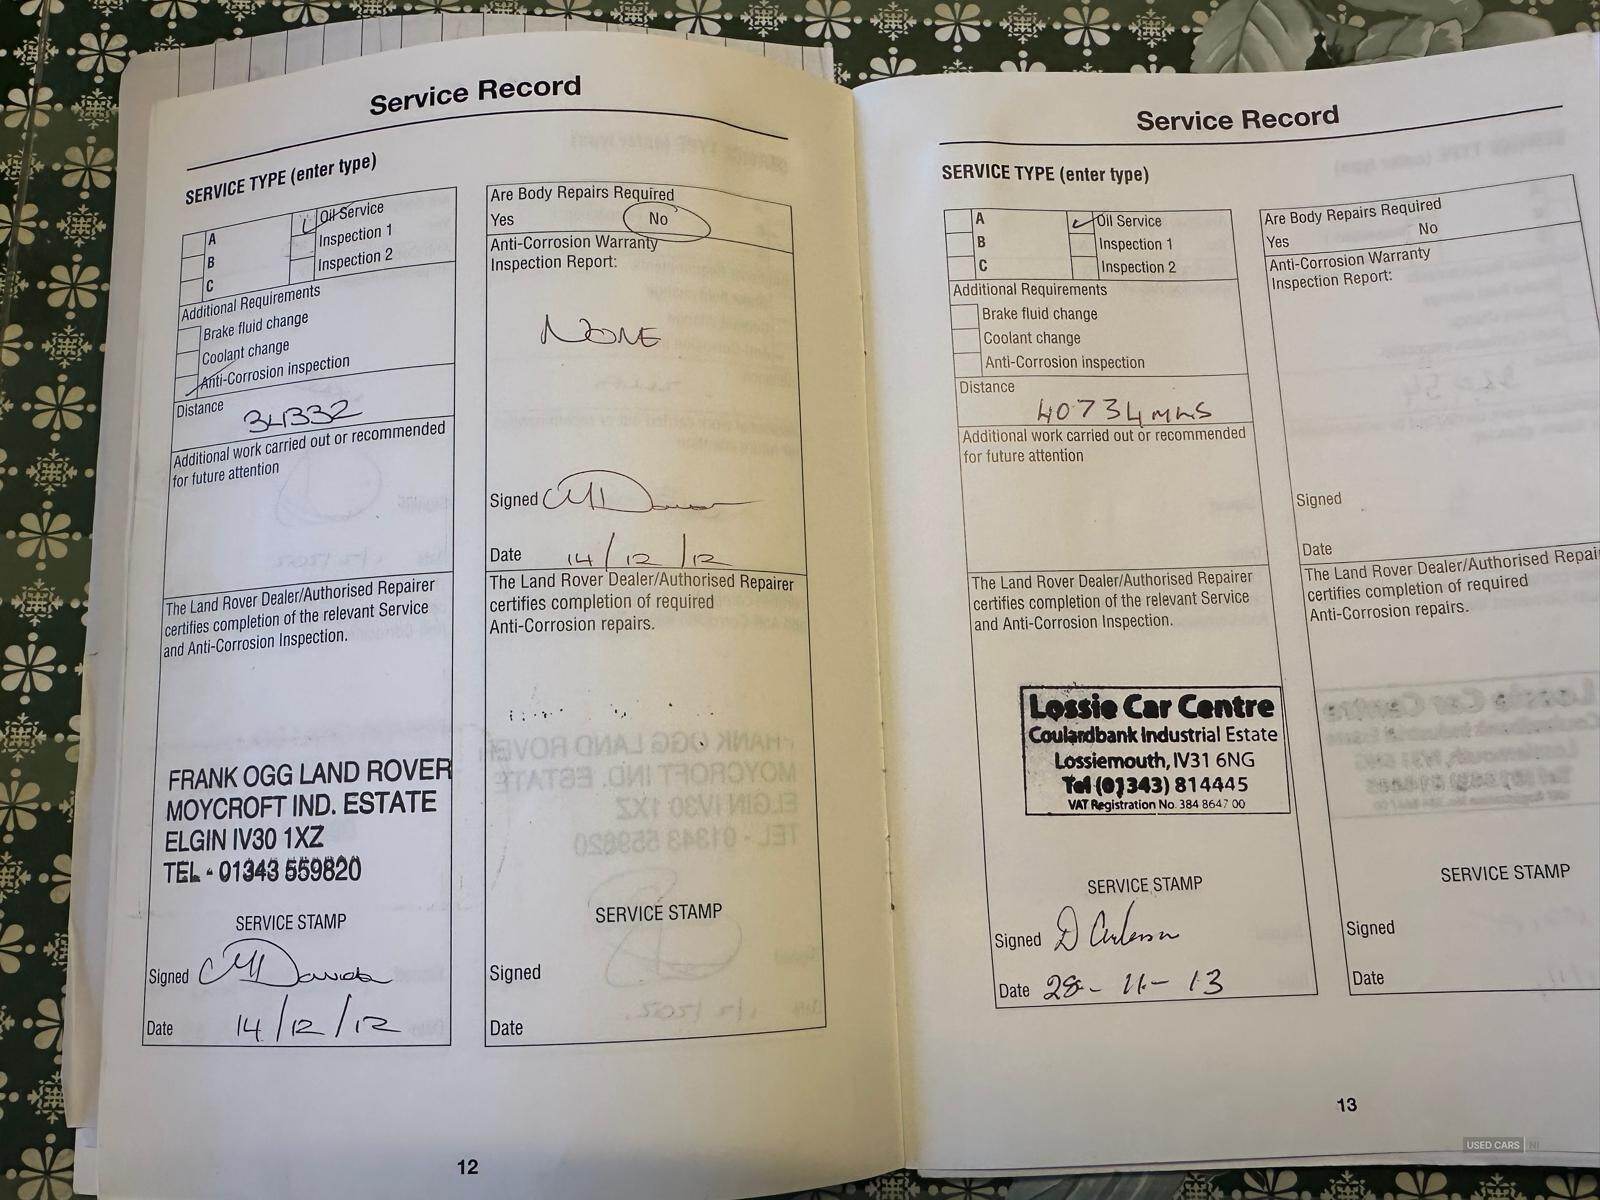 Service Record
SERVICE TYPE (enter type)
A
B
C
Oil Service
Inspection 1
Inspection 2
Additional Requirements
Brake fluid change
Coolant change
Anti-Corrosion inspection
Distance
34332
Additional work carried out or recommended
for future attention
The Land Rover Dealer/Authorised Repairer
certifies completion of the relevant Service
and Anti-Corrosion Inspection.
FRANK OGG LAND ROVER
MOYCROFT IND. ESTATE
ELGIN IV30 1XZ
TEL - 01343 559820
SERVICE STAMP
Signed
Date 14/12/12
Are Body Repairs Required
Yes No
Anti-Corrosion Warranty
Inspection Report:
NONE
Signed
Date 14/12/12
The Land Rover Dealer/Authorised Repairer
certifies completion of required
Anti-Corrosion repairs.
SERVICE STAMP
Signed
Date
12
Service Record
SERVICE TYPE (enter type)
A
B
C
Oil Service
Inspection 1
Inspection 2
Additional Requirements
Brake fluid change
Coolant change
Anti-Corrosion inspection
Distance
40734 MLS
Additional work carried out or recommended
for future attention
The Land Rover Dealer/Authorised Repairer
certifies completion of the relevant Service
and Anti-Corrosion Inspection.
Lossie Car Centre
Coulardbank Industrial Estate
Lossiemouth, IV31 6NG
Tel (01343) 814445
VAT Registration No. 384 8647 00
SERVICE STAMP
Signed
Date 28-11-13
Are Body Repairs Required
Yes No
Anti-Corrosion Warranty
Inspection Report:
Signed
Date
The Land Rover Dealer/Authorised Repai
certifies completion of required
Anti-Corrosion repairs.
SERVICE STAMP
Signed
Date
13
USED CARS NI